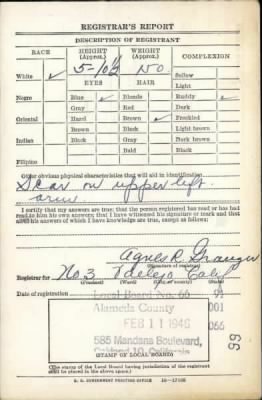 REGISTRAR'S REPORT
DESCRIPTION OF REGISTRANT
RACE HEIGHT (Approx.) WEIGHT (Approx.) COMPLEXION
White ✓ 5-10½ 150 Sallow
EYES HAIR Light
Negro Blue ✓ Blonde Ruddy ✓
Gray Red Dark
Oriental Hazel Brown ✓ Freckled
Brown Black Light brown
Indian Black Gray Dark brown
Bald Black
Filipino
Other obvious physical characteristics that will aid in identification
Scar on upper left
arm
I certify that my answers are true; that the person registered has read or has had
read to him his own answers; that I have witnessed his signature or mark and that
all of his answers of which I have knowledge are true, except as follows:
Agnes R.
(Signature of registrar)
Registrar for No 3 Calif
(Precinct) (Ward) (City or county) (State)
Date of registration
Local Board No. 66 91
Alameda County 001
FEB 11 1946 066
585 Mandana Boulevard,
Oakland 10, California
(STAMP OF LOCAL BOARD)
66
(The stamp of the Local Board having jurisdiction of the registrant
shall be placed in the above space.)
U. S. GOVERNMENT PRINTING OFFICE